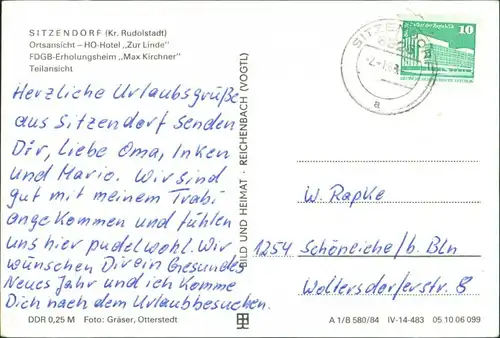 SITZENDORF (Kr. Rudolstadt)
Ortsansicht — HO-Hotel „Zur Linde"
FDGB-Erholungsheim „Max Kirchner"
Teilansicht
Herzliche Urlaubsgrüße
aus Sitzendorf senden
Dir, liebe Oma, Inken
und Mario. Wir sind
gut mit meinem Trabi
angekommen und fühlen
uns hier pudelwohl. Wir
wünschen Dir ein Gesundes
Neues Jahr und ich komme
Dich nach dem Urlaub besuchen.
DDR 0,25 M Foto: Gräser, Otterstedt
BILD UND HEIMAT · REICHENBACH (VOGTL)
SITZENDORF
a
10
W. Rapke
1254 Schöneiche/b. Bln
Woltersdorferstr. 8
A 1/B 580/84 IV-14-483 05 10 06 099